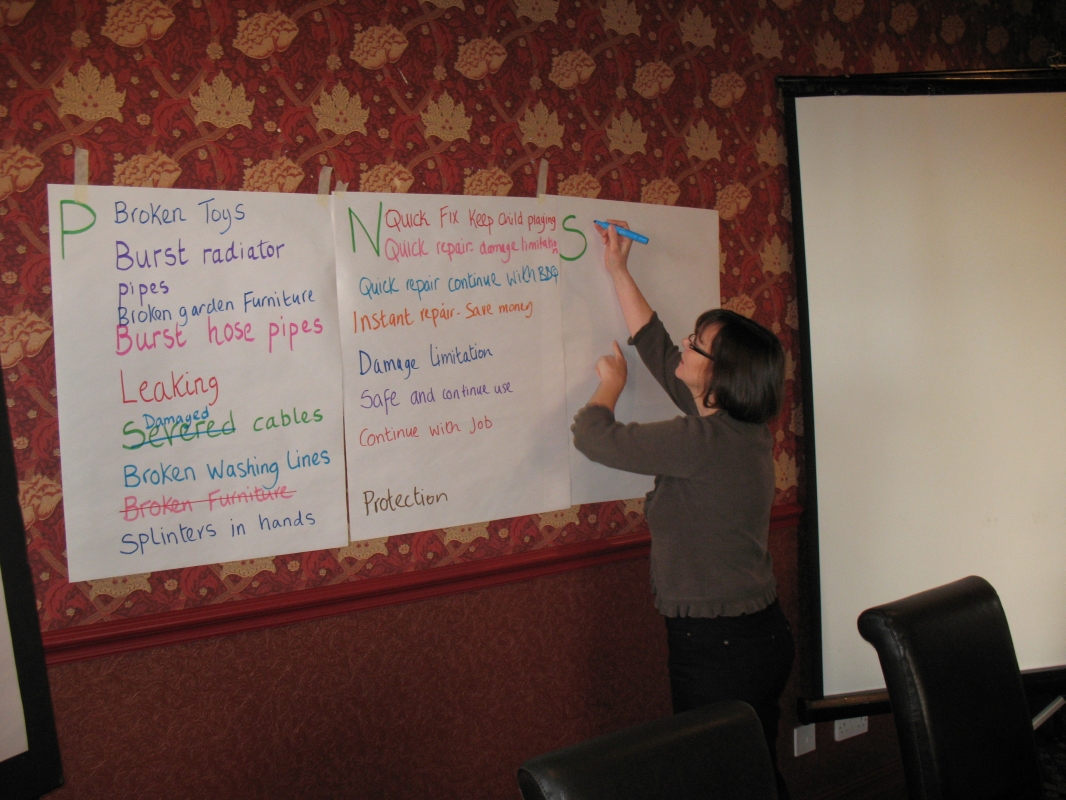 P
Broken Toys
Burst radiator
pipes
Broken garden Furniture
Burst hose pipes
Leaking
Damaged
Severed cables
Broken Washing Lines
Broken Furniture
Splinters in hands
N
Quick Fix Keep Child playing
Quick repair. damage limitation
Quick repair continue with BBQ
Instant repair. Save money
Damage Limitation
Safe and continue use
Continue with Job
Protection
S